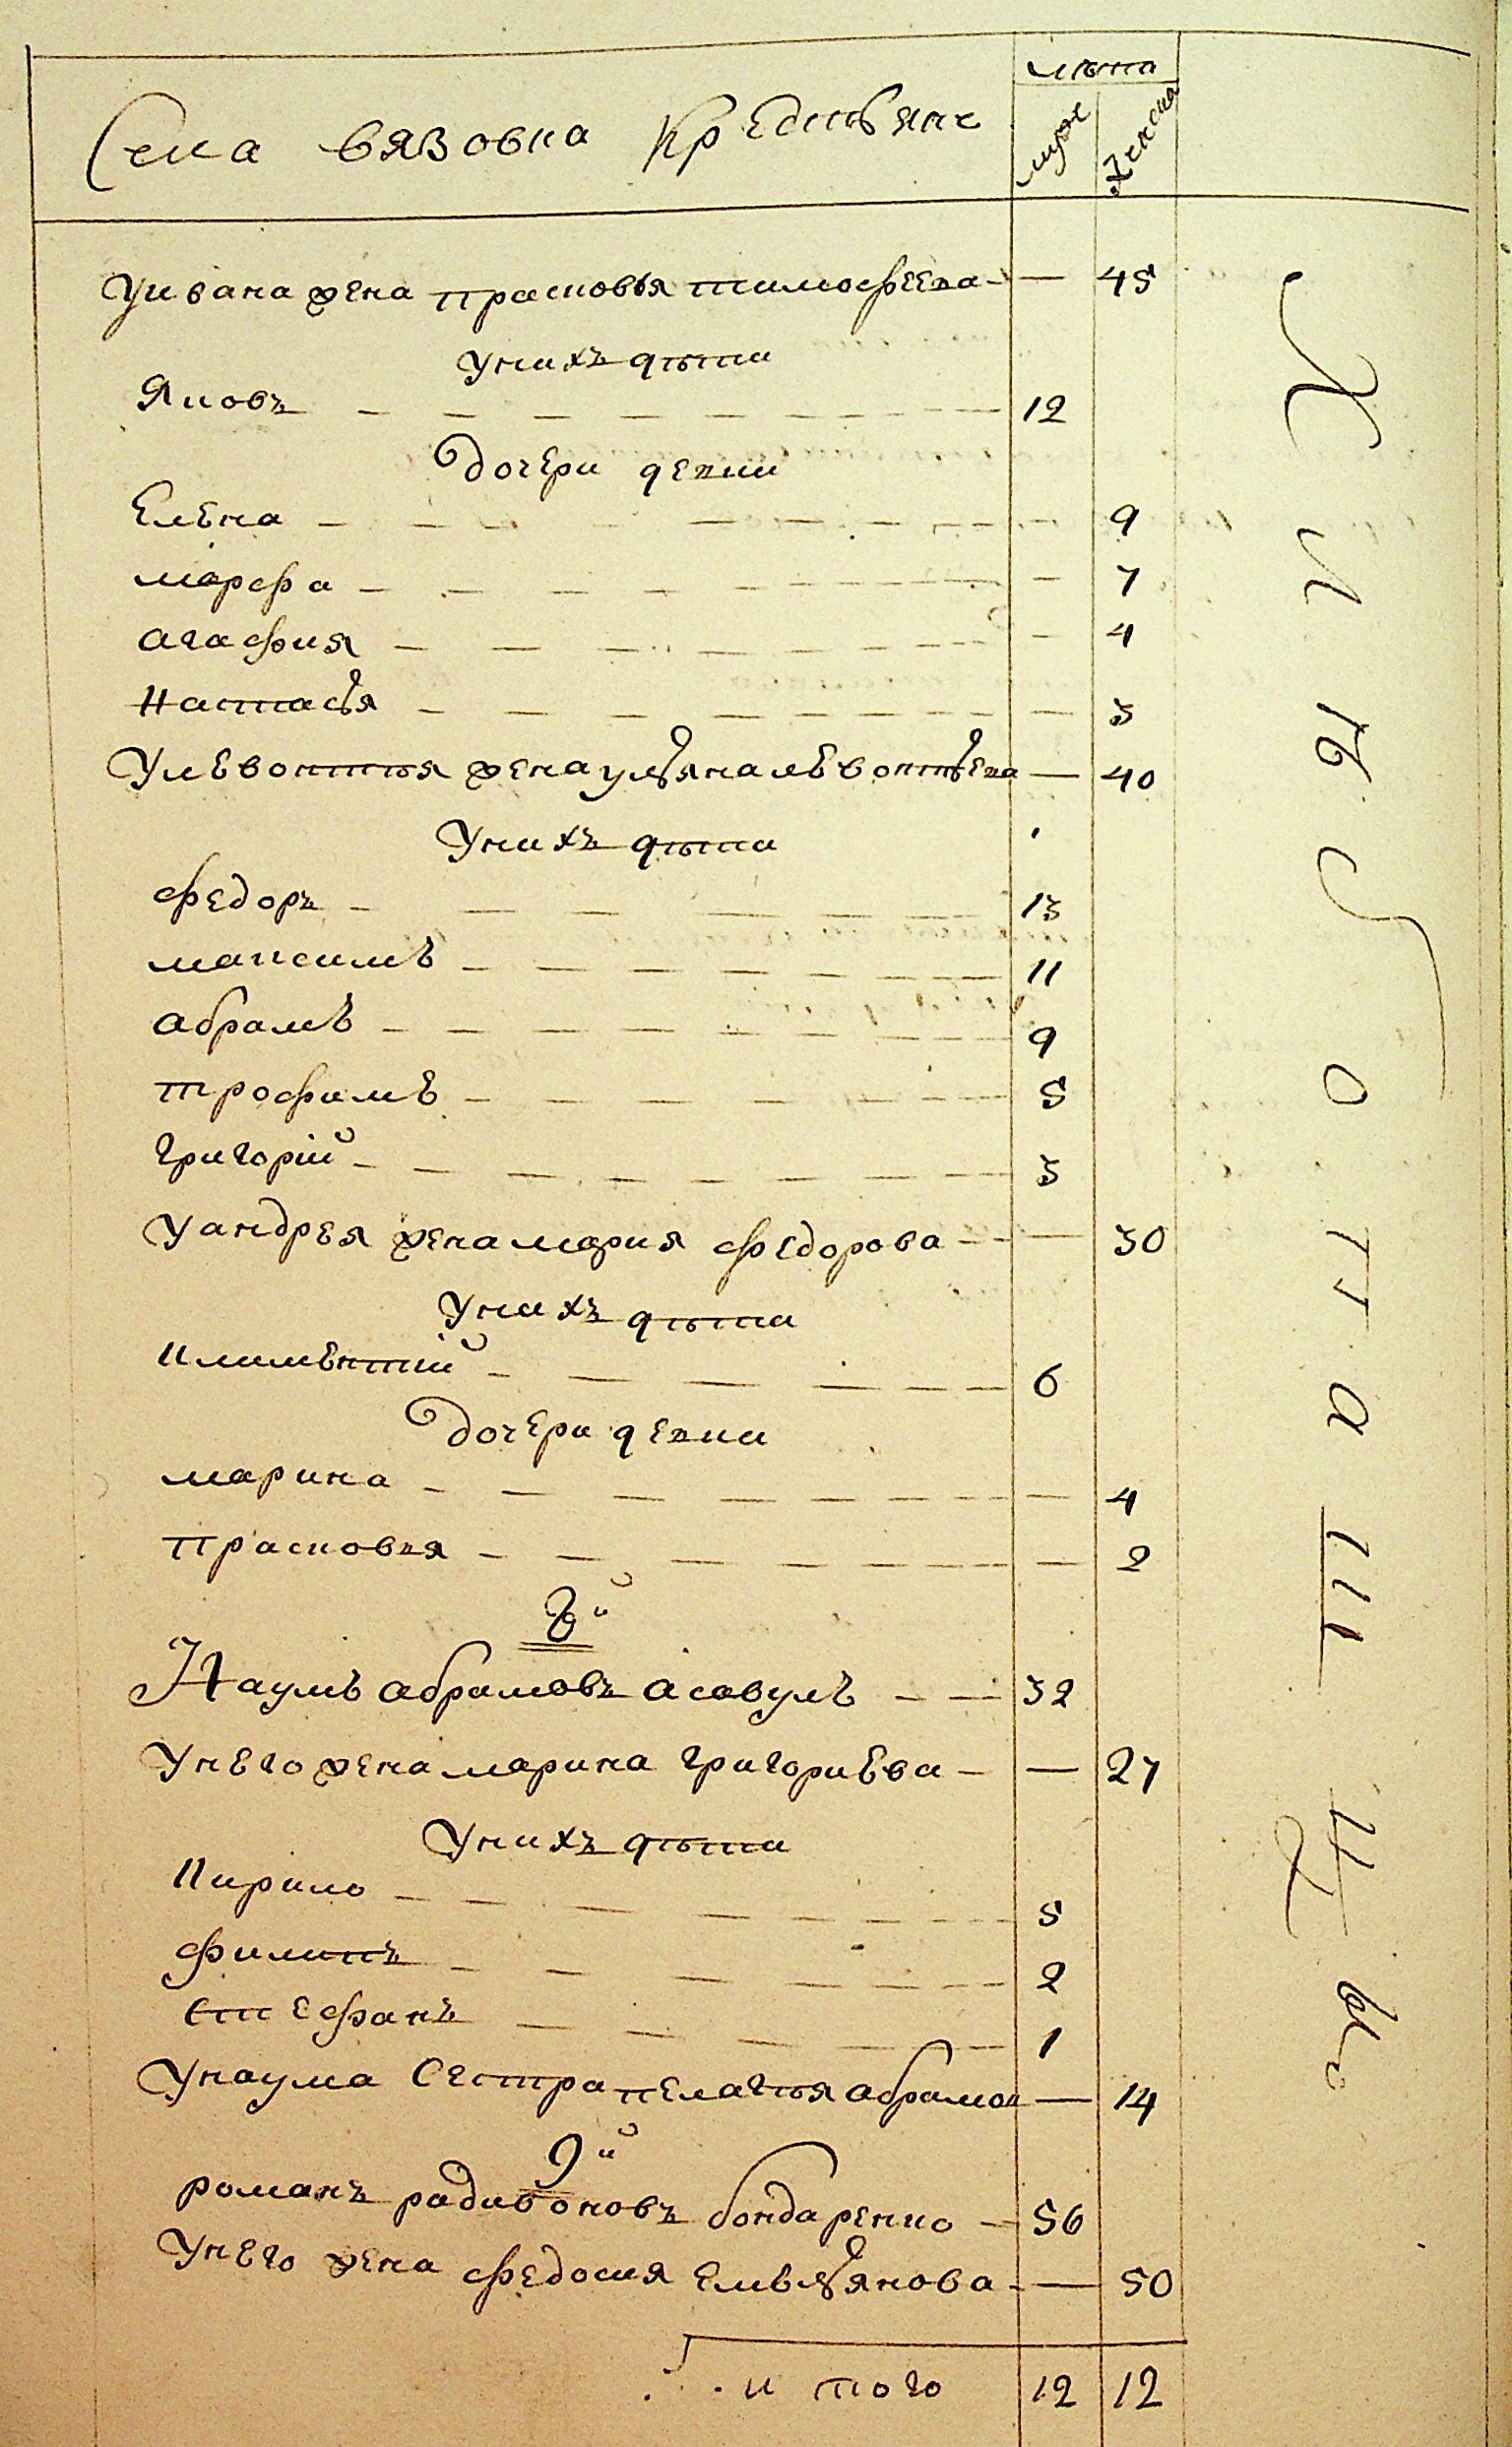 лѣта
Села вязовка крестьяне
муж
женска
Уивана жена прасковья тимофеева — 45
Унихъ дѣти
Яковъ 12
дочери девки
Елена — 9
марфа — 7
агафия — 4
Настасья — 3
Улевонтия жена ульяна левонтьева — 40
Унихъ дѣти
федоръ 13
максимъ 11
абрамъ 9
трофимъ 5
григорій 3
Уандрея жена мария федорова — 30
Унихъ дѣти
климентий 6
дочери девки
марина — 4
прасковея — 2
8й
Наумъ абрамовъ асавулъ 32
Унего жена марина григориева — 27
Унихъ дѣти
кирило 5
филипъ 2
стефанъ 1
Унаума сестра пелагия абрамов — 14
9й
романъ радивоновъ бондаренко 56
Унего жена федосия емельянова — 50
итого 12 12